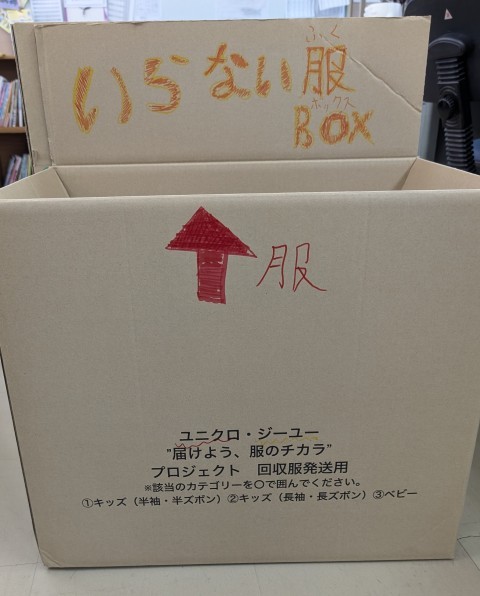 ふく
いらない服
ボックス
BOX
服
ユニクロ・ジーユー
"届けよう、服のチカラ"
プロジェクト　回収服発送用
※該当のカテゴリーを〇で囲んでください。
①キッズ（半袖・半ズボン）②キッズ（長袖・長ズボン）③ベビー